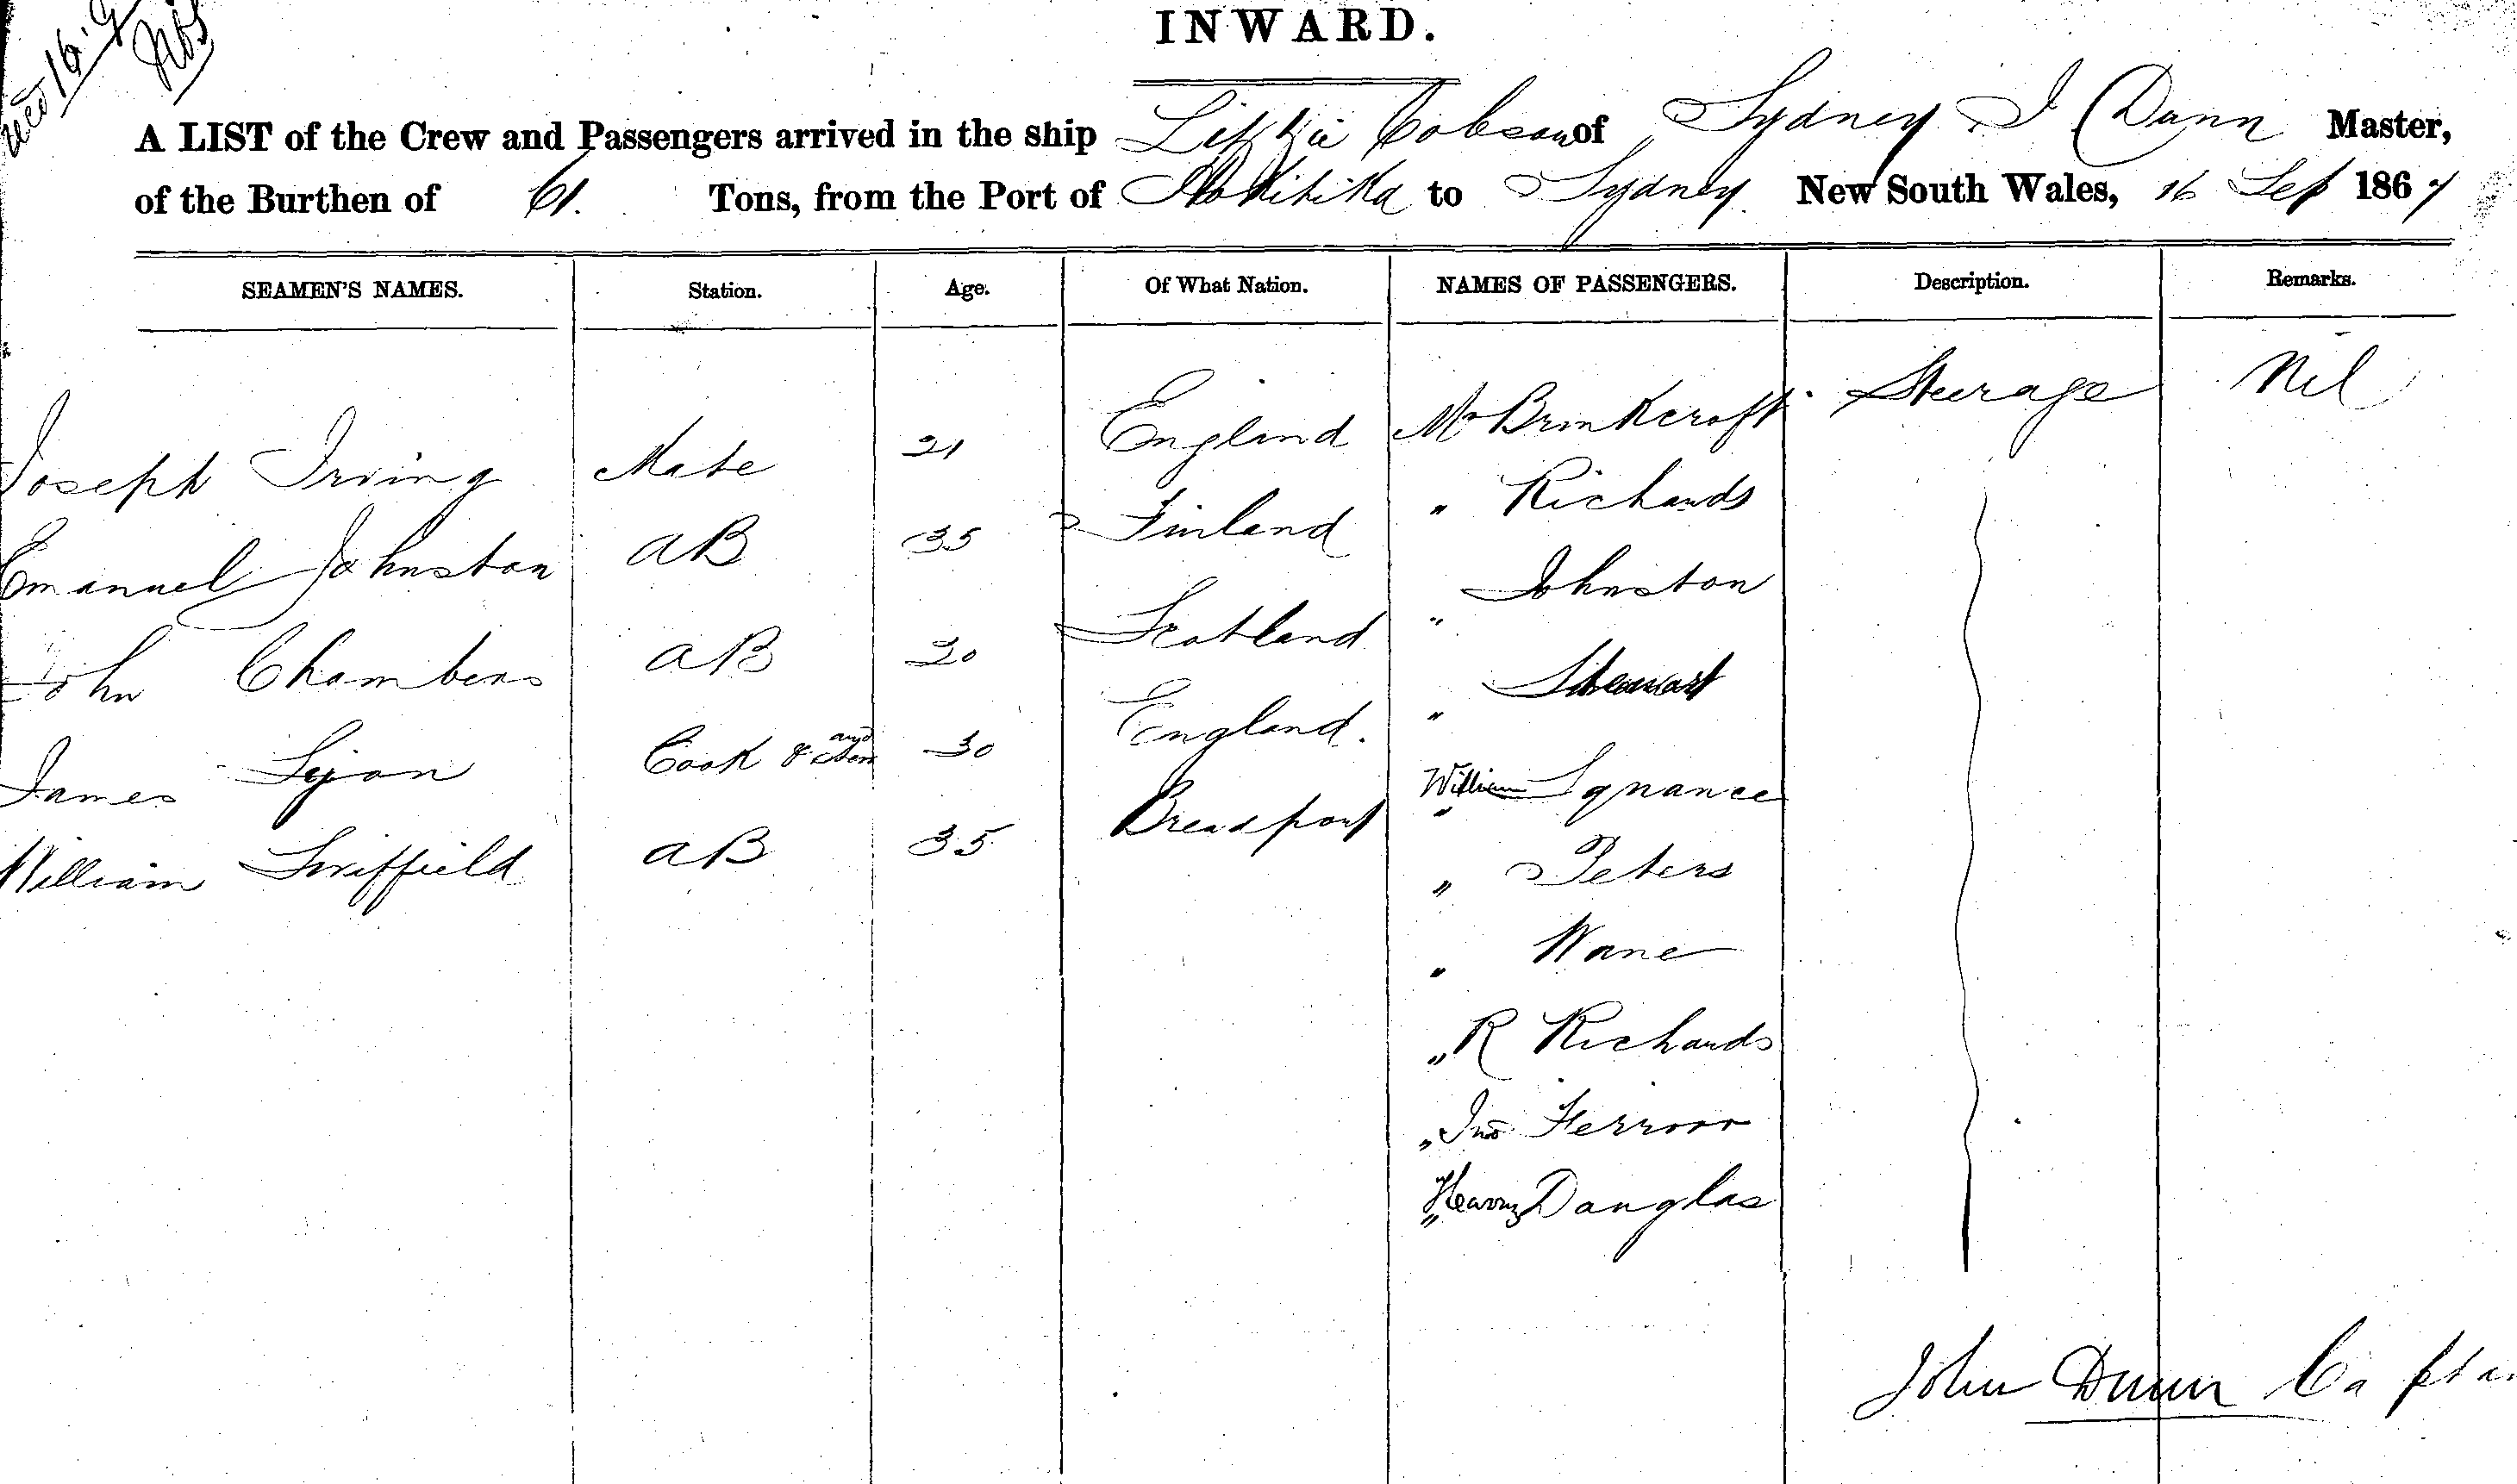 INWARD.
A LIST of the Crew and Passengers arrived in the ship Lizzie Cobson of Sydney J Dunn Master,
of the Burthen of 61. Tons, from the Port of Hokitika to Sydney. New South Wales, 16 Sep 1867
SEAMEN'S NAMES. Station. Age. Of What Nation. NAMES OF PASSENGERS. Description. Remarks.
Joseph Irving Mate 21 England Mr Brinkcroft Steerage Nil
Emanuel Johnston AB 35 Finland " Richards
John Chambers AB 20 Scotland " Johnston
James Cook & 30 England. " Stewart
William AB 35 Breadport William
" Peters
" Wane
" R Richards
" Jno Ferrior
" Henry Douglas
John Dunn Captan